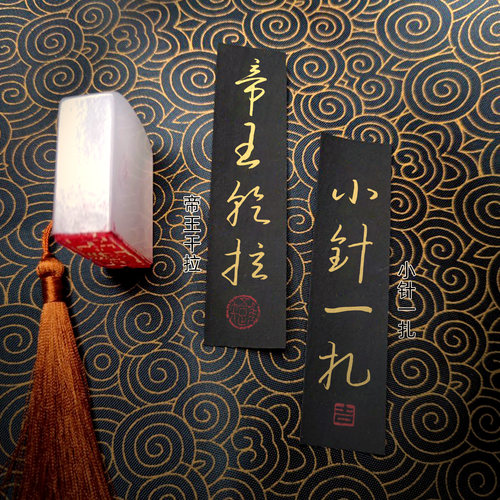 帝王拉
帝王干拉
小針一扎
小针一扎